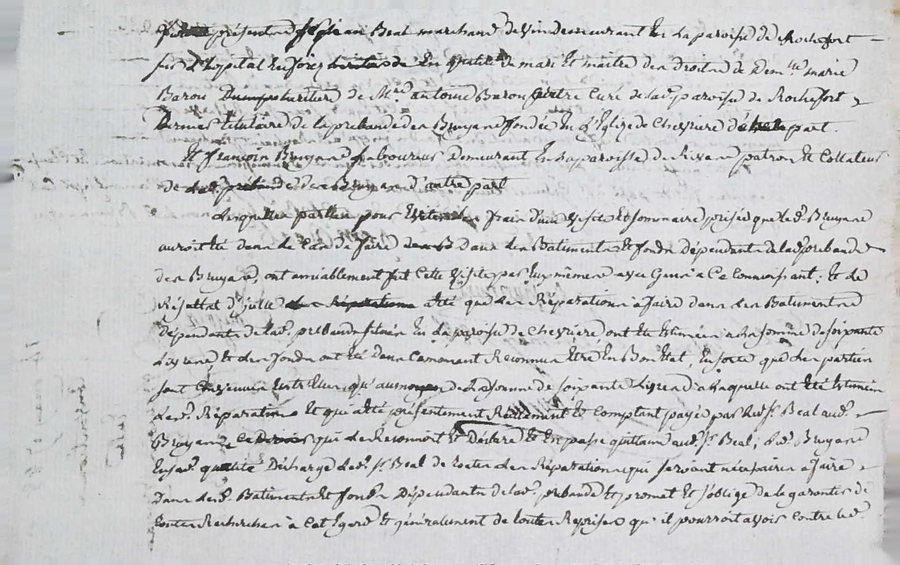 présent Sr jean Beal marchand de vin demeurant En La paroisse de Rochefort
sur L'hopital En forez En qualité de mari Et maitre des Droits de Dem.lle marie
Barou heritier de M.re antoine Barou Curé de lad. paroisse de Rochefort
Dernier titulaire de la prebande des Bruyere fondée En L'Eglize de Chevriere d'Une part.
Et françois Bruyere Laboureur Demeurant En La paroisse de patron Et Collateur
de lad. prebande des Bruyere d'autre part
Lesquelles parties pour Eviter les frais d'une visite Et sommaire prisée que led. Bruyere
auroit Eté dans le Cas de faire Dans les Batiments Et fonds Dépendants de lad. prebande
des Bruyere, ont amiablement fait Cette visite par Eux mêmes avec Gens a Ce Connoissant. Et le
Résultat d'icelle a Eté que les Réparations a faire dans les Batiments
Dépendants de lad. prebande située En La paroisse de Chevriere, ont Eté Estimées a La somme de soixante
Livres, & les fonds ont Eté Dans Ce moment Reconnus Etre En Bon Etat, En sorte que les parties
sont Convenues Entr'Elles qu'au moyen de La somme de soixante Livres a Laquelle ont Eté Estimées
lesd. Réparations Et qui a Eté présentement Réellement Et Comptant payée par led. Sr Beal aud.
Bruyere qui le Reconnoit Et Déclare Et En passe quittance aud. Sr Beal, led. Bruyere
En sad. qualité Décharge led. Sr Beal de toutes les Réparations qui seroient nécessaires a faire
Dans lesd. Batiments Et fonds Dépendants de lad. prebande Et promet Et s'oblige de le garantir de
toutes Recherches a Cet Egard Et généralement de toutes Reprises qu'il pourroit avoir Contre led.